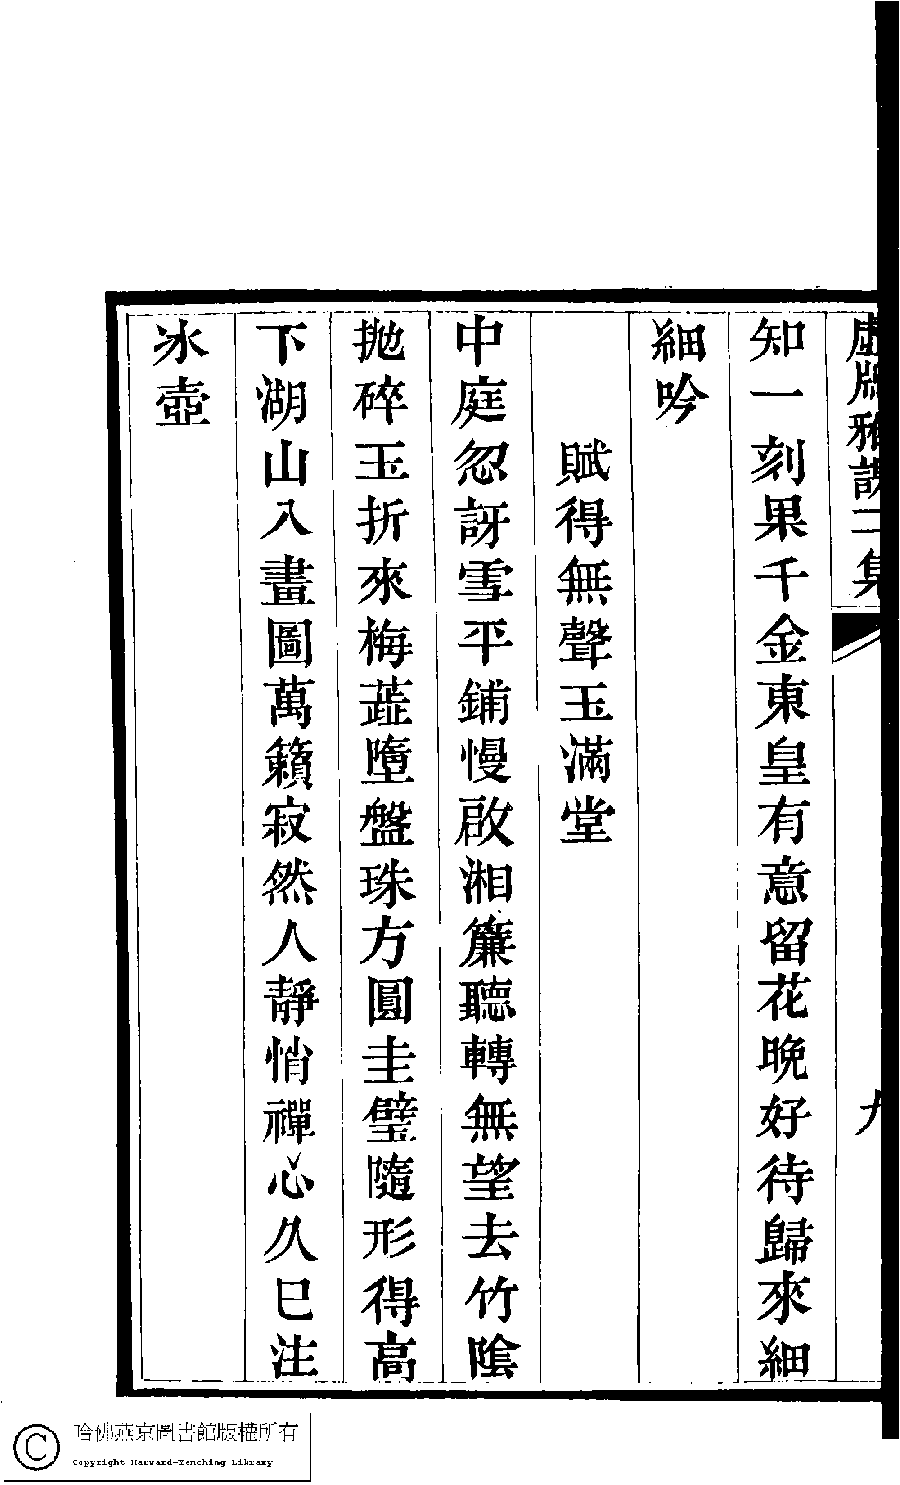 虛牕雅課二集 九
知一刻果千金東皇有意留花晚好待歸來細
細吟
賦得無聲玉滿堂
中庭忽訝雪平鋪慢啟湘簾聽轉無望去竹陰
拋碎玉折來梅蕋墮盤珠方圓圭璧隨形得高
下湖山入畫圖萬籟寂然人靜悄禪心久巳注
冰壺
哈佛燕京圖書館版權所有
Copyright Harvard-Yenching Library